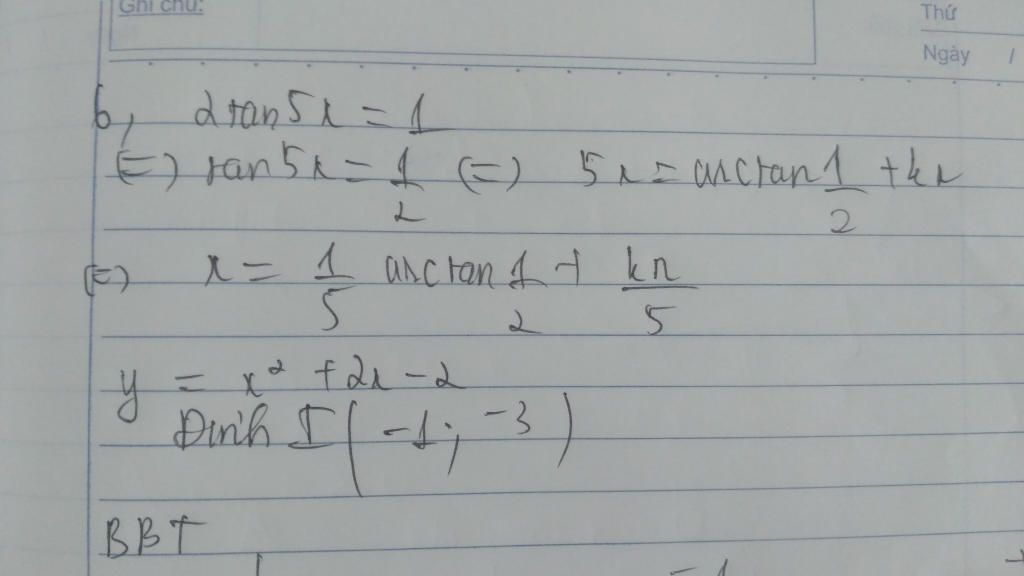 Ghi chú:
Thứ
Ngày /
b, 2tan5x = 1
(=) tan5x = 1/2 (=) 5x = arctan 1/2 + kπ
(=) x = 1/5 arctan 1/2 + kπ/5
y = x² + 2x - 2
Đỉnh I ( -1; -3 )
BBT